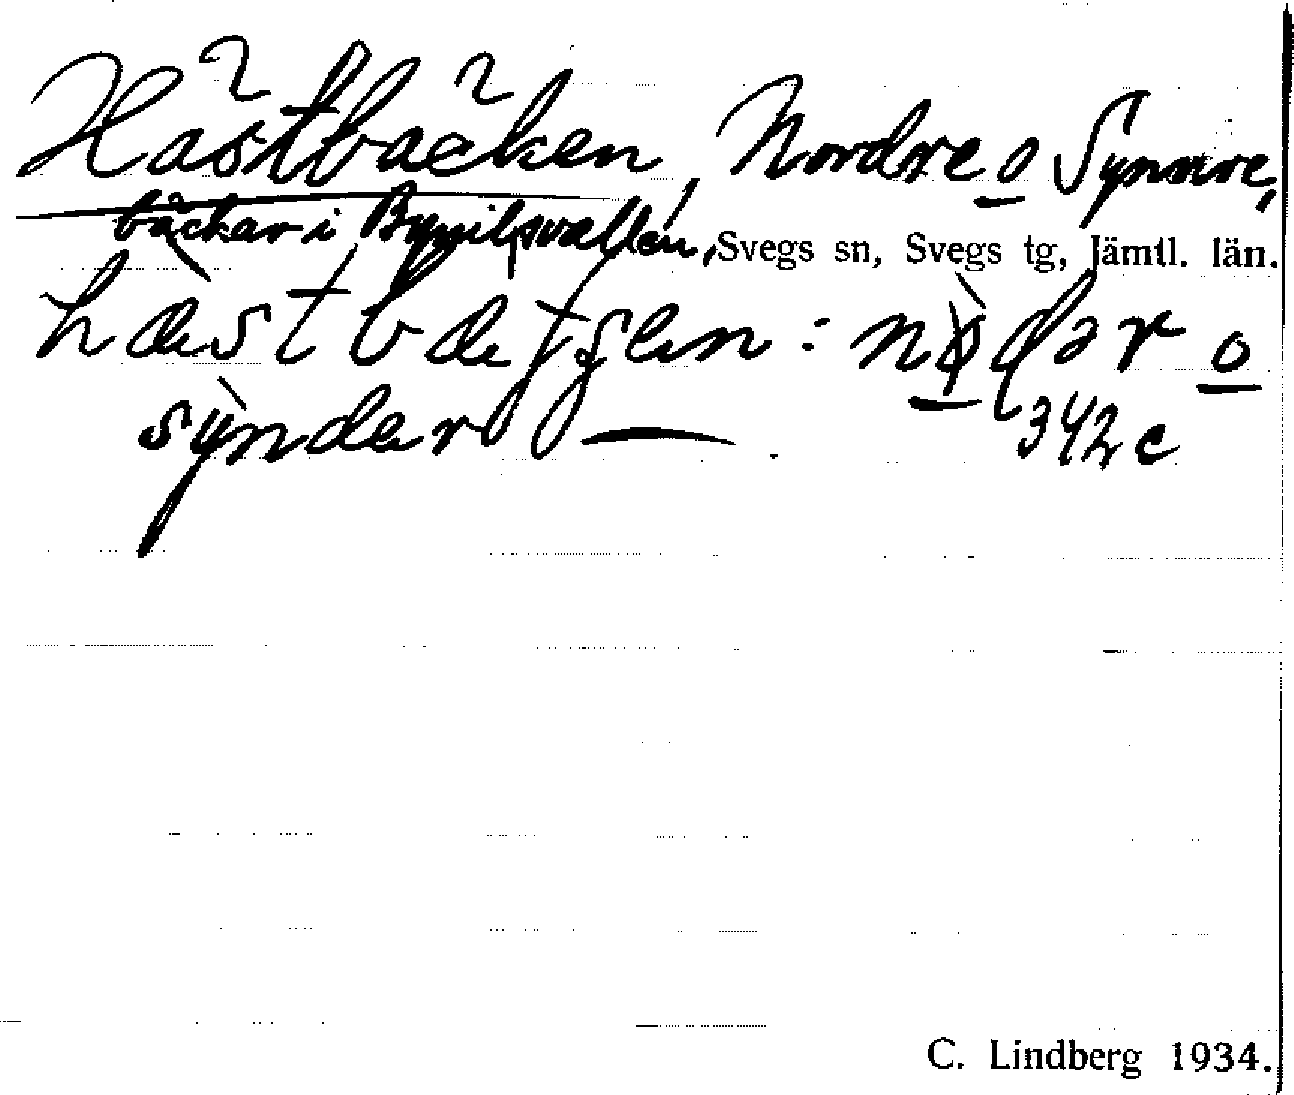 Hästbäcken, Nordre o Synnre,
bäckar i Bynilsvallen, Svegs sn, Svegs tg, Jämtl. län.
hæstbætjen : nø̀dər o
sỳndər
342 c
C. Lindberg 1934.